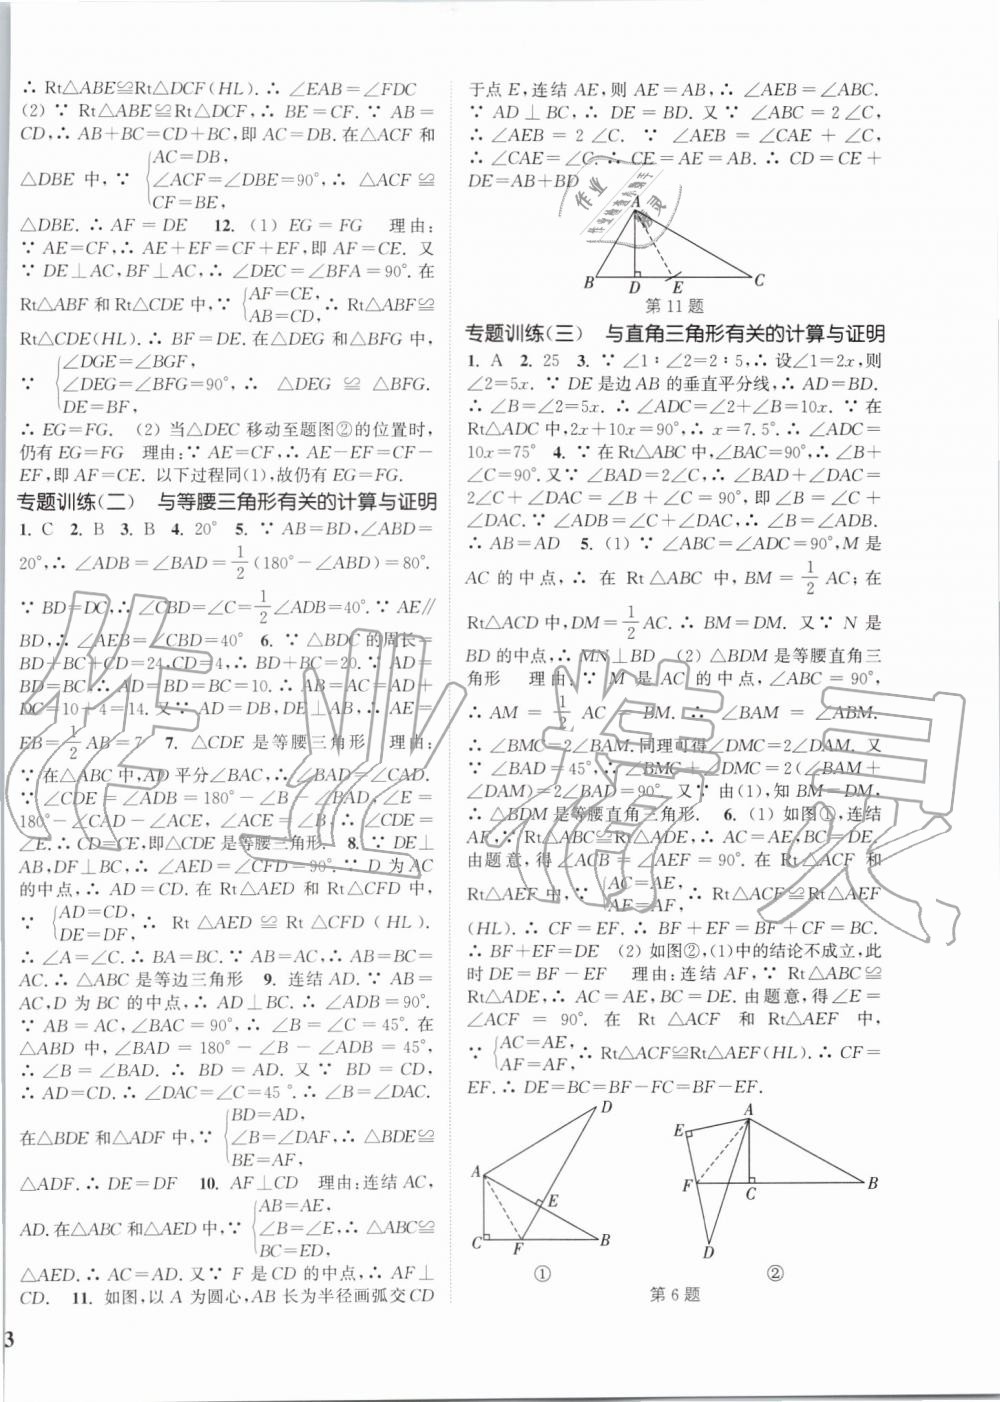 ∴ Rt△ABE≌Rt△DCF(HL).∴ ∠EAB=∠FDC
(2) ∵ Rt△ABE≌Rt△DCF,∴ BE=CF.∵ AB=
CD,∴ AB+BC=CD+BC,即AC=DB.在△ACF 和
△DBE 中,∵ {AC=DB,
∠ACF=∠DBE=90°,∴ △ACF ≌
CF=BE,
△DBE.∴ AF=DE 12. (1) EG=FG 理由:
∵ AE=CF,∴ AE+EF=CF+EF,即AF=CE. 又
∵ DE⊥AC,BF⊥AC,∴ ∠DEC=∠BFA=90°.在
Rt△ABF 和 Rt△CDE 中,∵ {AF=CE,
AB=CD,∴ Rt△ABF≌
Rt△CDE(HL).∴ BF=DE.在△DEG 和△BFG 中,
∵ {∠DGE=∠BGF,
∠DEG=∠BFG=90°,∴ △DEG ≌ △BFG.
DE=BF,
∴ EG=FG. (2) 当△DEC 移动至题图②的位置时,
仍有 EG=FG 理由:∵ AE=CF,∴ AE-EF=CF-
EF,即 AF=CE. 以下过程同(1),故仍有 EG=FG.
专题训练(二) 与等腰三角形有关的计算与证明
1. C 2. B 3. B 4. 20° 5. ∵ AB=BD,∠ABD=
20°,∴ ∠ADB=∠BAD=1/2(180°-∠ABD)=80°.
∵ BD=DC,∴ ∠CBD=∠C=1/2∠ADB=40°.∵ AE∥
BD,∴ ∠AEB=∠CBD=40° 6. ∵ △BDC 的周长=
BD+BC+CD=24,CD=4,∴ BD+BC=20.∵ AD=
BD=BC,∴ AD=BD=BC=10.∴ AB=AC=AD+
DC=10+4=14. 又∵ AD=DB,DE⊥AB,∴ AE=
EB=1/2AB=7 7. △CDE 是等腰三角形 理由:
∵ 在△ABC 中,AD 平分∠BAC,∴ ∠BAD=∠CAD.
∵ ∠CDE=∠ADB=180°-∠B-∠BAD,∠E=
180°-∠CAD-∠ACE, ∠ACE=∠B,∴ ∠CDE=
∠E.∴ CD=CE,即△CDE 是等腰三角形 8. ∵ DE⊥
AB,DF⊥BC,∴ ∠AED=∠CFD=90°.∵ D 为 AC
的中点,∴ AD=CD. 在 Rt△AED 和 Rt△CFD 中,
∵ {AD=CD,
DE=DF,∴ Rt△AED≌Rt△CFD(HL).
∴ ∠A=∠C.∴ BA=BC.∵ AB=AC,∴ AB=BC=
AC.∴ △ABC 是等边三角形 9. 连结 AD.∵ AB=
AC,D 为 BC 的中点,∴ AD⊥BC.∴ ∠ADB=90°.
∵ AB=AC,∠BAC=90°,∴ ∠B=∠C=45°. 在
△ABD 中,∠BAD=180°-∠B-∠ADB=45°,
∴ ∠B=∠BAD.∴ BD=AD. 又∵ BD=CD,
∴ AD=CD.∴ ∠DAC=∠C=45°.∴ ∠B=∠DAC.
在△BDE 和△ADF 中,∵ {BD=AD,
∠B=∠DAF,∴ △BDE≌
BE=AF,
△ADF.∴ DE=DF 10. AF⊥CD 理由:连结 AC,
AD.在△ABC 和△AED 中,∵ {AB=AE,
∠B=∠E,∴ △ABC≌
BC=ED,
△AED.∴ AC=AD. 又∵ F 是 CD 的中点,∴ AF⊥
CD. 11. 如图,以 A 为圆心,AB 长为半径画弧交 CD
3
于点 E,连结 AE,则 AE=AB,∴ ∠AEB=∠ABC.
∵ AD⊥BC,∴ DE=BD. 又∵ ∠ABC=2∠C,
∴ ∠AEB=2∠C. ∵ ∠AEB=∠CAE+∠C,
∴ ∠CAE=∠C.∴ CE=AE=AB.∴ CD=CE+
DE=AB+BD
A
B D E C
第 11 题
专题训练(三) 与直角三角形有关的计算与证明
1. A 2. 25 3. ∵ ∠1∶∠2=2∶5,∴ 设∠1=2x,则
∠2=5x.∵ DE 是边 AB 的垂直平分线,∴ AD=BD.
∴ ∠B=∠2=5x.∴ ∠ADC=∠2+∠B=10x.∵ 在
Rt△ADC 中,2x+10x=90°,∴ x=7.5°.∴ ∠ADC=
10x=75° 4. ∵ 在 Rt△ABC 中,∠BAC=90°,∴ ∠B
+∠C=90°.又∵ ∠BAD=2∠C,∴ ∠BAD+∠DAC=
2∠C+∠DAC=∠B+∠C=90°,即∠B=∠C+
∠DAC.∵ ∠ADB=∠C+∠DAC,∴ ∠B=∠ADB.
∴ AB=AD 5. (1) ∵ ∠ABC=∠ADC=90°,M 是
AC 的中点,∴ 在 Rt△ABC 中,BM=1/2AC;在
Rt△ACD 中,DM=1/2AC.∴ BM=DM. 又∵ N 是
BD 的中点,∴ MN⊥BD (2) △BDM 是等腰直角三
角形 理由:∵ M 是 AC 的中点,∠ABC=90°,
∴ AM=1/2AC=BM.∴ ∠BAM=∠ABM.
∴ ∠BMC=2∠BAM.同理可得∠DMC=2∠DAM. 又
∵ ∠BAD=45°,∴ ∠BMC+∠DMC=2(∠BAM+
∠DAM)=2∠BAD=90°. 又∵ 由(1),知 BM=DM,
∴ △BDM 是等腰直角三角形. 6. (1) 如图①,连结
AF,∵ Rt△ABC≌Rt△ADE,∴ AC=AE,BC=DE.
由题意,得∠ACB=∠AEF=90°. 在 Rt△ACF 和
Rt△AEF 中,∵ {AC=AE,
AF=AF,∴ Rt△ACF≌Rt△AEF
(HL).∴ CF=EF.∴ BF+EF=BF+CF=BC.
∴ BF+EF=DE (2) 如图②,(1)中的结论不成立,此
时 DE=BF-EF 理由:连结 AF,∵ Rt△ABC≌
Rt△ADE,∴ AC=AE,BC=DE. 由题意,得∠E=
∠ACF=90°. 在 Rt△ACF 和 Rt△AEF 中,
∵ {AC=AE,
AF=AF,∴ Rt△ACF≌Rt△AEF(HL).∴ CF=
EF.∴ DE=BC=BF-FC=BF-EF.
D
A
E
C F B
①
A
E
F C B
D
②
第 6 题
作业精灵